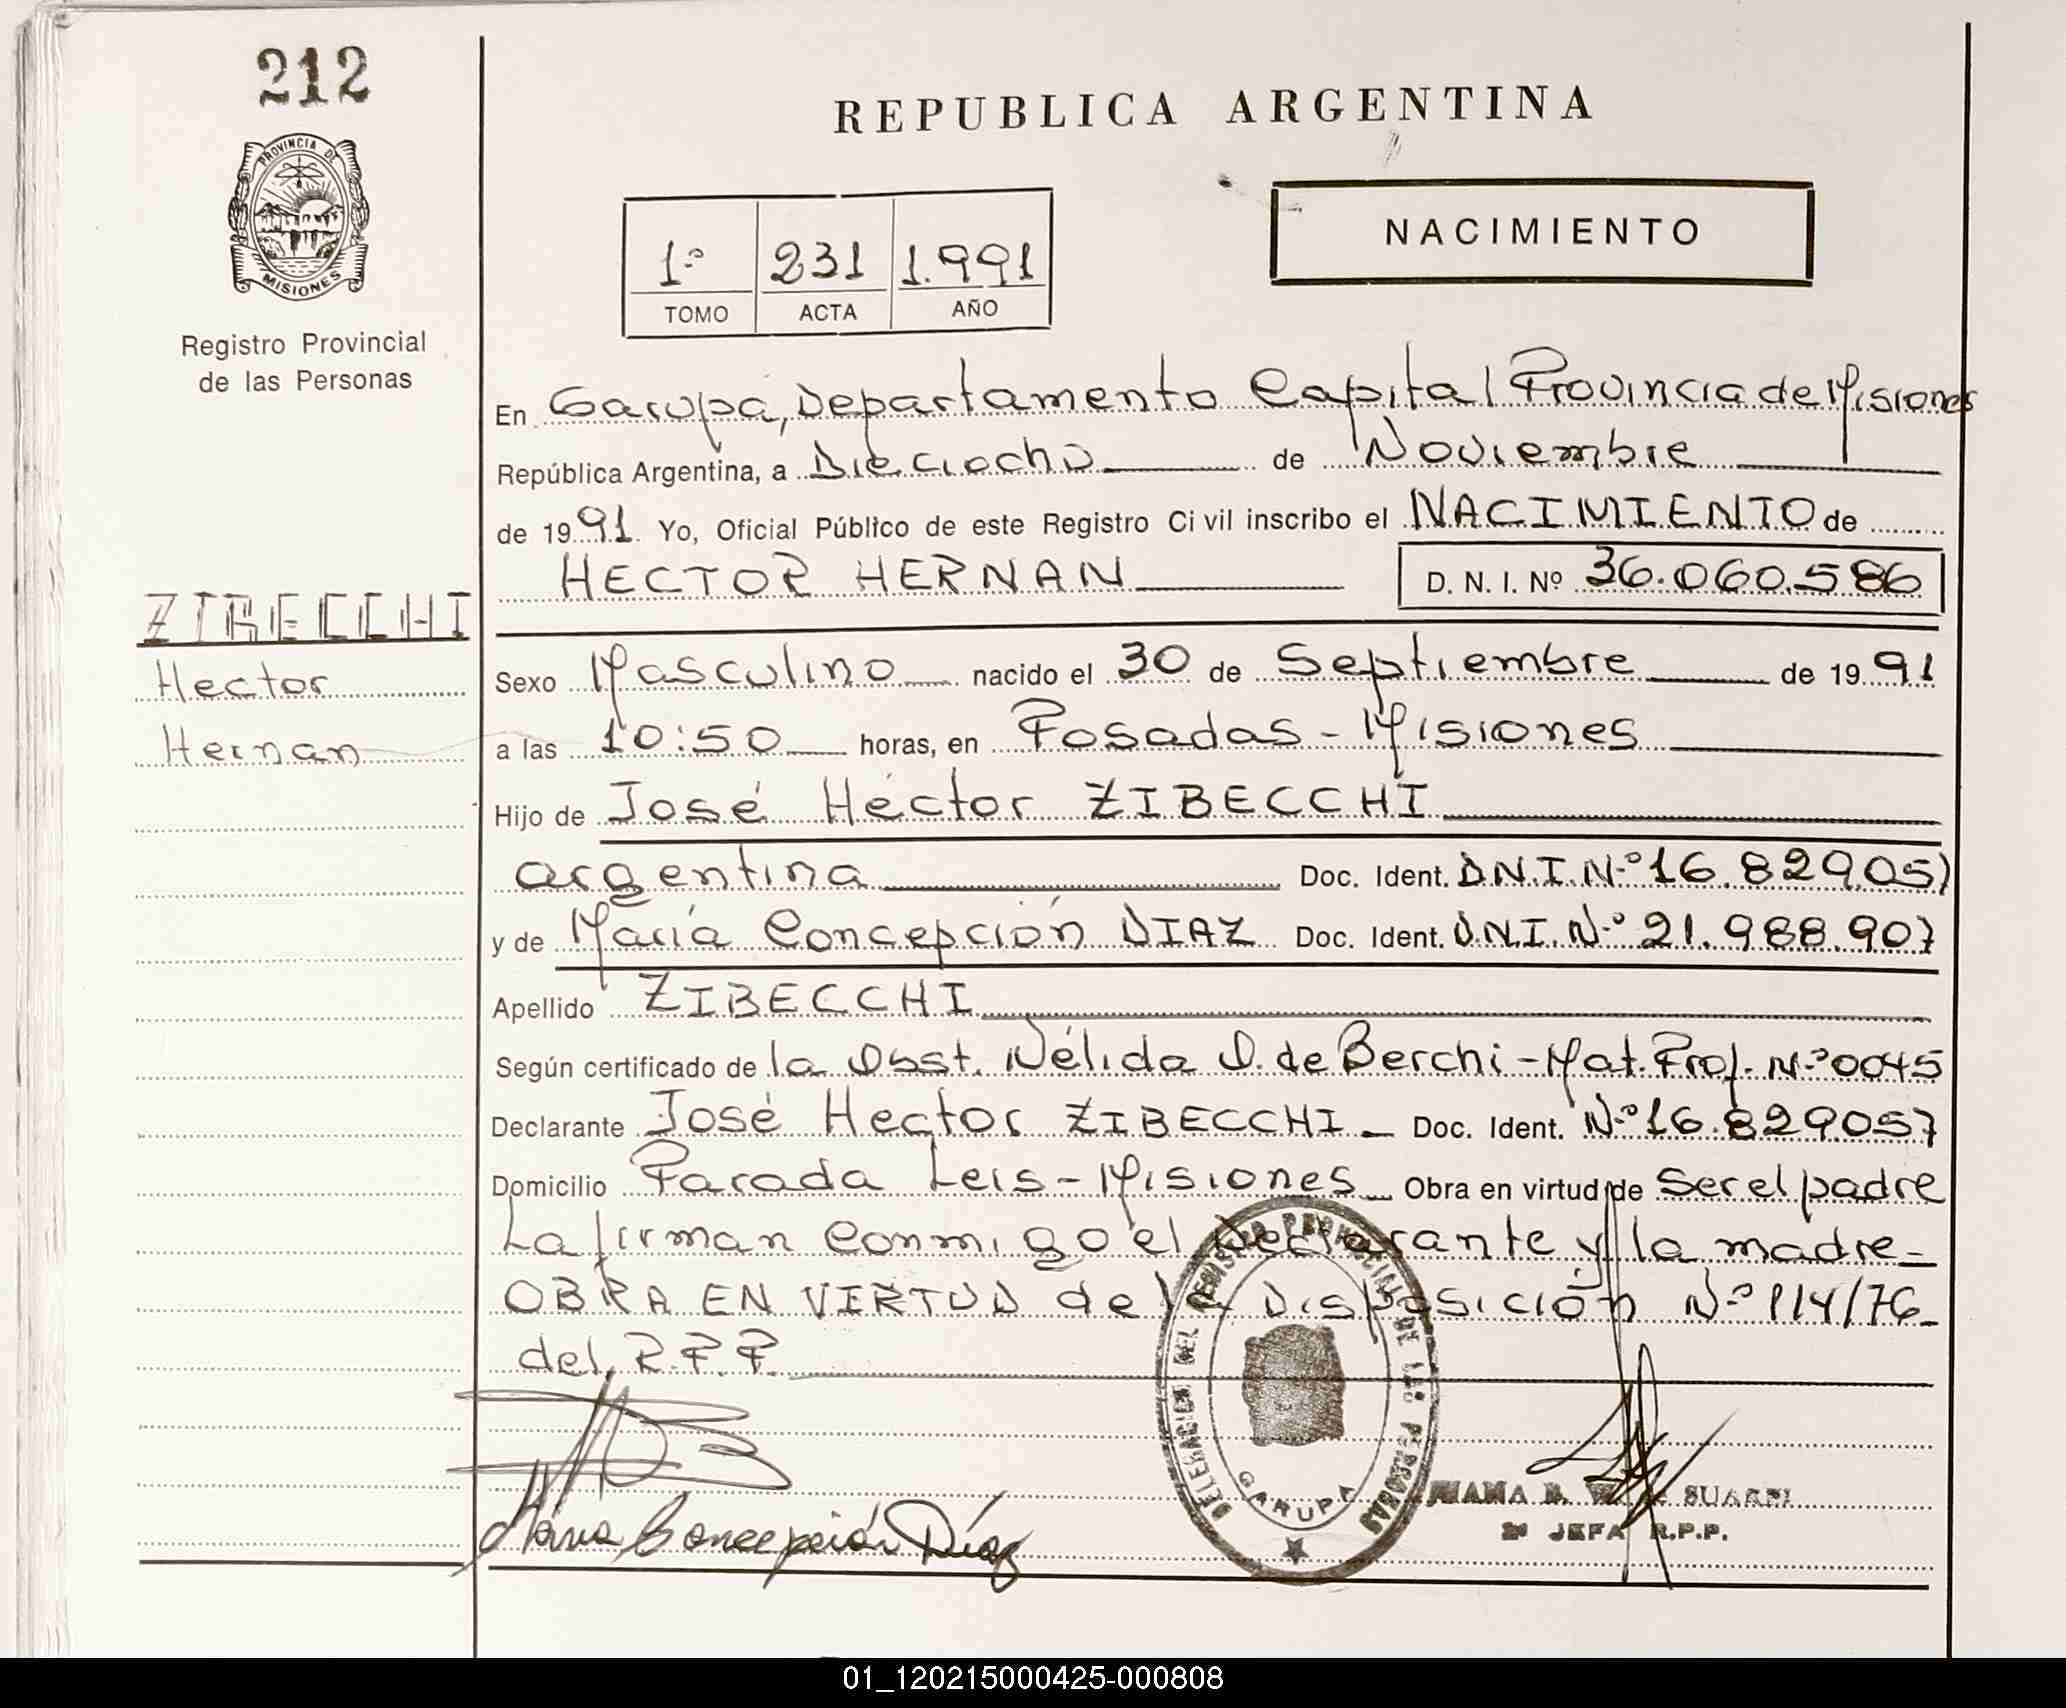 212
REPUBLICA ARGENTINA
PROVINCIA DE
MISIONES
NACIMIENTO
1º 231 1.991
TOMO ACTA AÑO
Registro Provincial
de las Personas
En Garupá, Departamento Capital Provincia de Misiones
República Argentina, a Dieciocho de Noviembre
de 1991 Yo, Oficial Público de este Registro Civil inscribo el NACIMIENTO de
HECTOR HERNAN D. N. I. Nº 36.060.586
ZIBECCHI
Hector
Hernan
Sexo Masculino nacido el 30 de Septiembre de 1991
a las 10:50 horas, en Posadas - Misiones
Hijo de José Héctor ZIBECCHI
argentina Doc. Ident. D.N.I. Nº 16.829.057
y de María Concepción DIAZ Doc. Ident. D.N.I. Nº 21.988.907
Apellido ZIBECCHI
Según certificado de la Obst. Nélida D. de Berchi - Mat. Prof. Nº 0045
Declarante José Hector ZIBECCHI Doc. Ident. Nº 16.829057
Domicilio Parada Leis - Misiones Obra en virtud de Ser el padre
La firman conmigo el Declarante y la madre -
OBRA EN VIRTUD de la Disposición Nº 114/76 -
del R.P.P.
DELEGACION DEL REGISTRO PROVINCIAL DE LAS PERSONAS
GARUPA
SUAREZ
2º JEFA R.P.P.
María Concepción Díaz
01_120215000425-000808